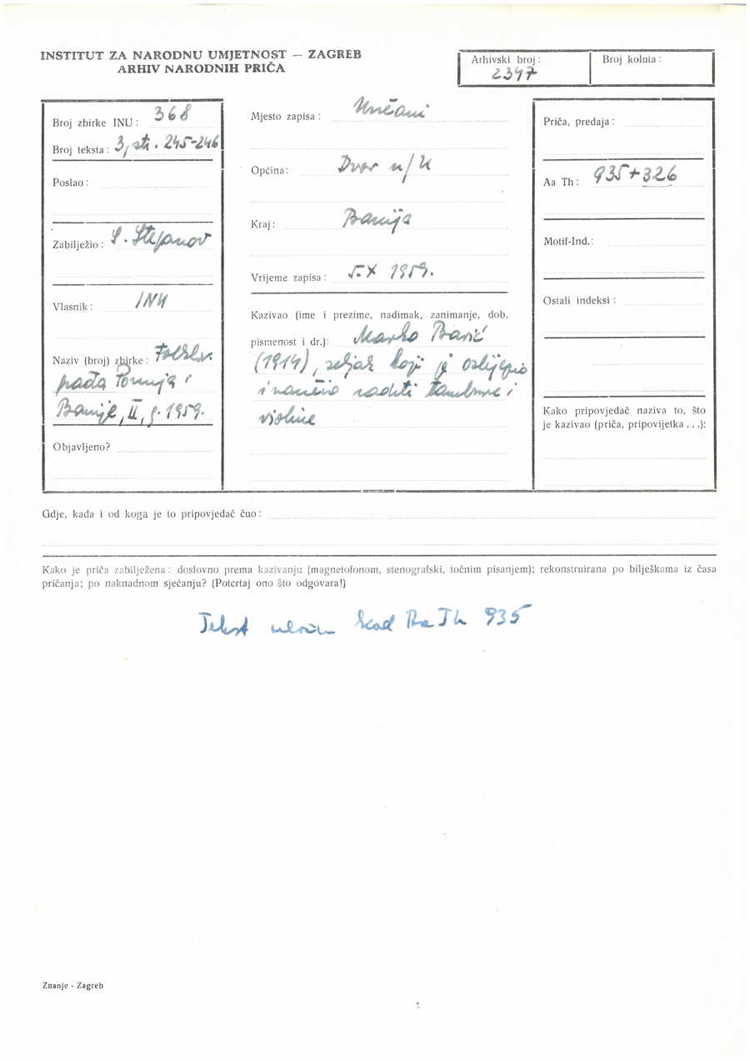 INSTITUT ZA NARODNU UMJETNOST — ZAGREB
ARHIV NARODNIH PRIČA
Arhivski broj:
2397
Broj kolnta:
Broj zbirke INU: 368
Broj teksta: 3, str. 245-246
Poslao:
Zabilježio: S. Stepanov
Vlasnik: INU
Naziv (broj) zbirke: Folklor.
građa
Banije, II, g. 1959.
Objavljeno?
Mjesto zapisa: Unčani
Općina: Dvor n/U
Kraj: Banija
Vrijeme zapisa: 5.X 1959.
Kazivao (ime i prezime, nadimak, zanimanje, dob,
pismenost i dr.): Marko Barić
(1914), seljak koji je oslijepio
i naučio raditi tambure i
violine
Priča, predaja:
Aa Th: 935+326
Motif-Ind.:
Ostali indeksi:
Kako pripovjedač naziva to, što
je kazivao (priča, pripovijetka ...):
Gdje, kada i od koga je to pripovjedač čuo:
Kako je priča zabilježena: doslovno prema kazivanju (magnetofonom, stenografski, točnim pisanjem); rekonstruirana po bilješkama iz časa
pričanja; po naknadnom sjećanju? (Potcrtaj ono što odgovara!)
Tekst kod Aa Th 935
Znanje - Zagreb